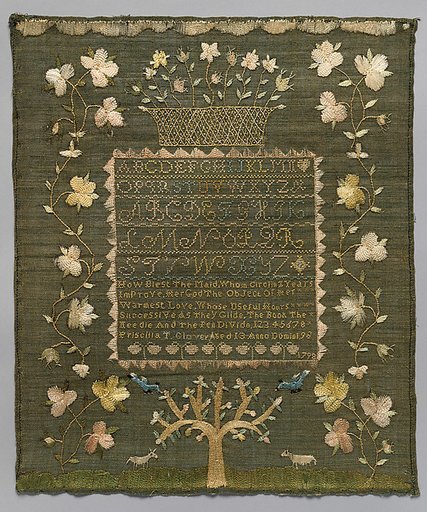 ABCDEFGHIJKLMN
OPQRSTUVWXYZ&
ABCDEFGHIK
LMNOPQR
STVWXYZ
How Blest The Maid, Whom Circling Years
Improve, Her God The Object Of Her
Warmest Love, Whose Useful Hours
Successive As They Glide, The Book The
Needle And The Pen Divide, 12345678
Priscilla T. Glover Aged 13 Anno Domini, 98
1798